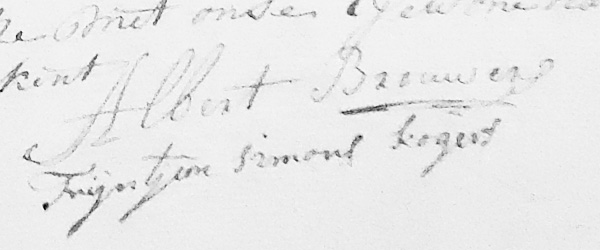 met onse
kent Albert Brouwer
Trijntjen simons kogert